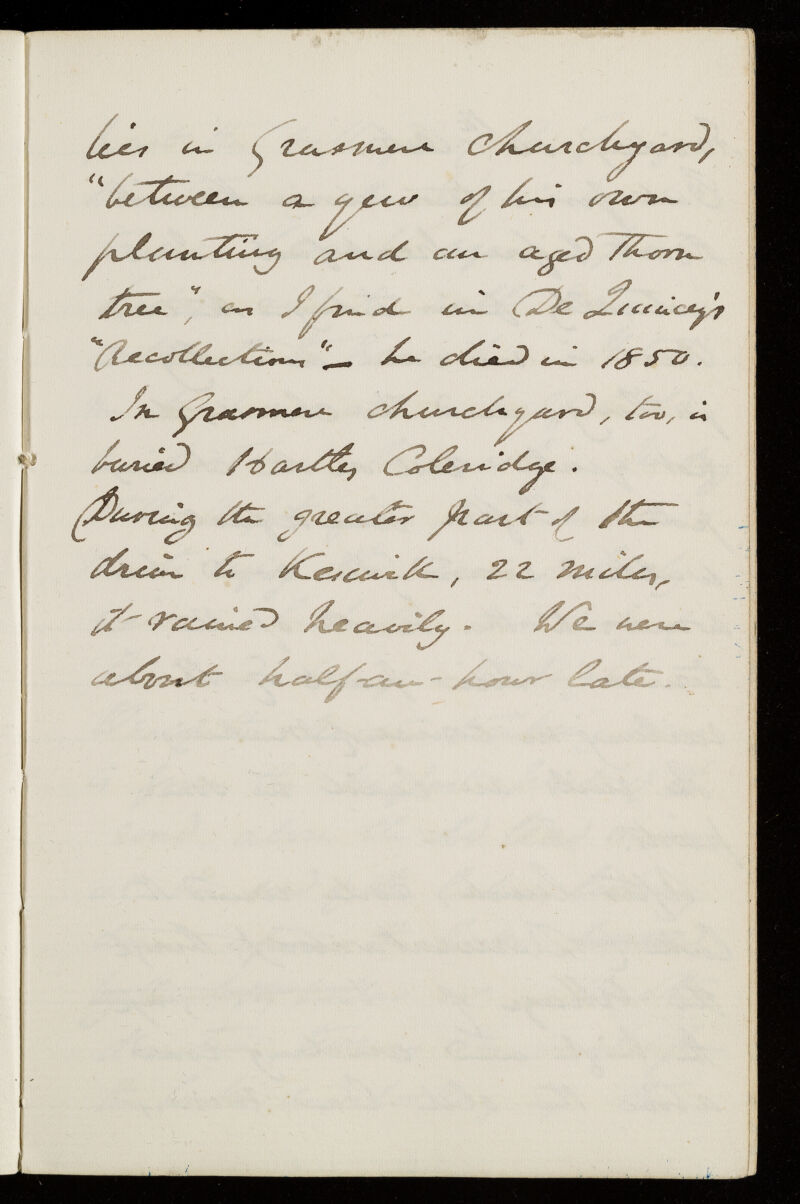 lies in Grasmere churchyard,
"between a yew of his own
planting and an aged thorn
tree", as I find in De Quincey's
"Recollections" – he died in 1850.
In Grasmere churchyard, too, is
buried Hartley Coleridge.
During the greater part of the
drive to Keswick, 22 miles,
it rained heavily. We were
about half-an-hour late.